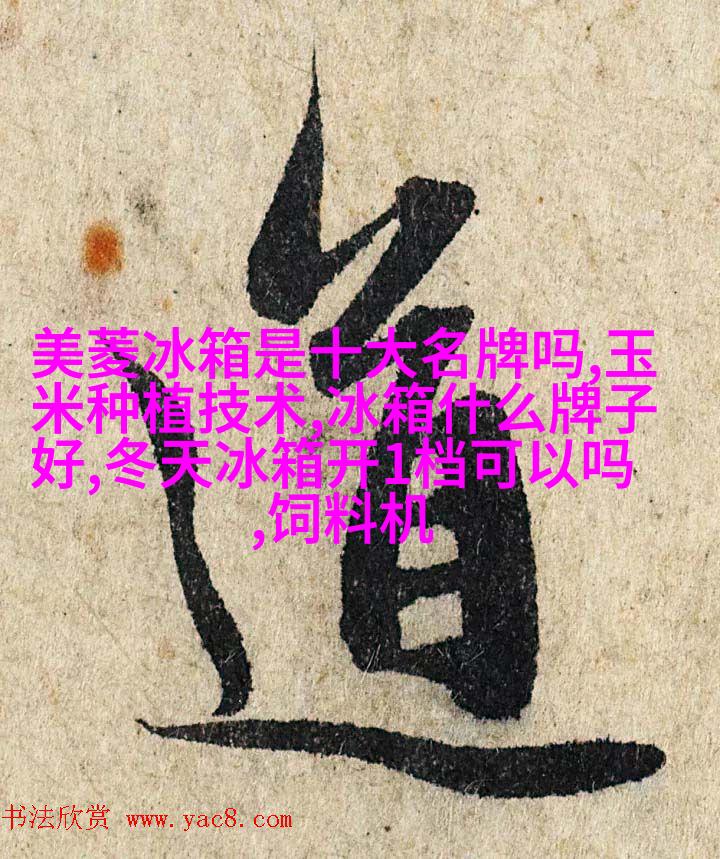 道
美菱冰箱是十大名牌吗,玉
米种植技术,冰箱什么牌子
好,冬天冰箱开1档可以吗
,饲料机
书法欣赏 www.yac8.com